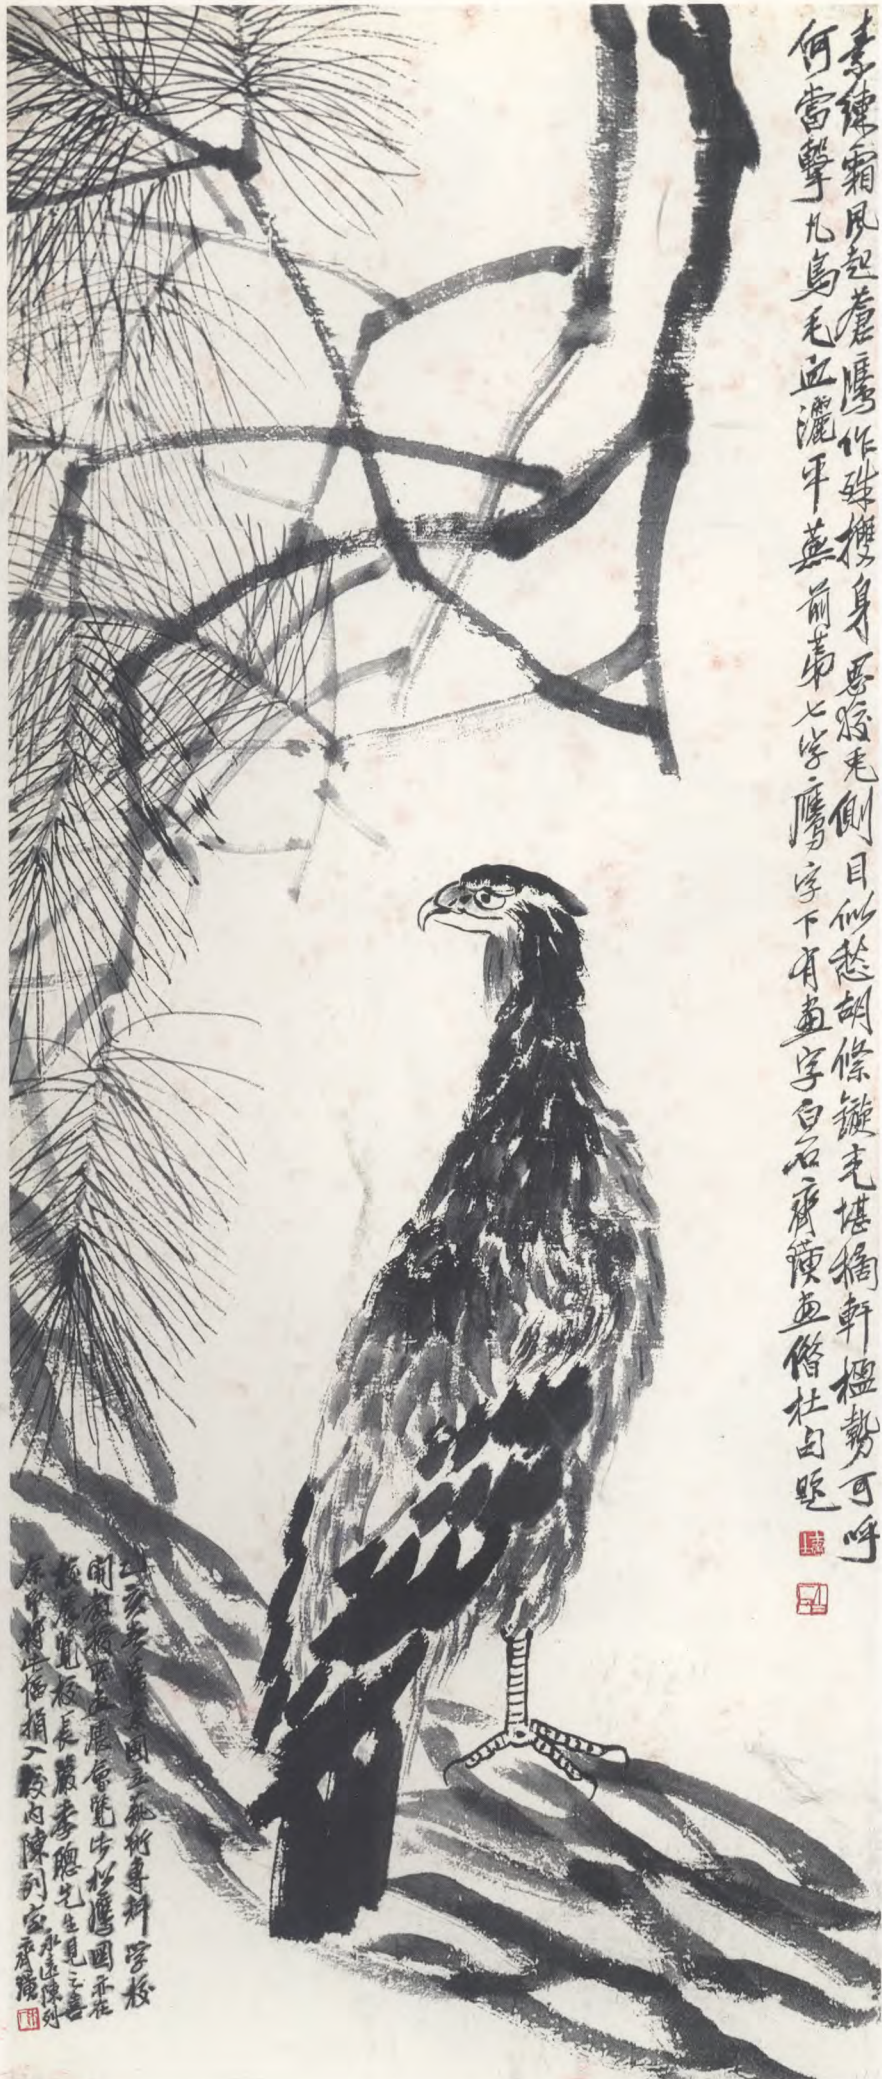 素練霜風起蒼鷹作殊㩳身思狡兔側目似愁胡絛鏇光堪摘軒楹勢可呼
何當擊凡鳥毛血灑平蕪 前第七字鷹字下有畫字白石齊璜畫借杜句題
乙亥冬 國立藝術專科學校
開 展會覽步松鷹圖亦在
校展覽校長嚴季聰先生見之喜
余即將此幅捐入校內陳列室永遠陳列
齊璜